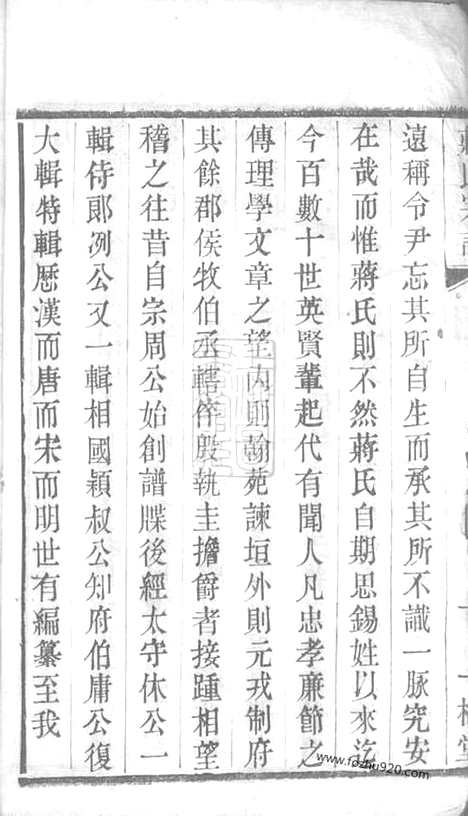 遠稱令尹忘其所自生而承其所不識一脉究安
在哉而惟蔣氏則不然蔣氏自期思錫姓以來迄
今百數十世英賢輩起代有聞人凡忠孝廉節之
傳理學文章之望內則翰苑諫垣外則元戎制府
其餘郡侯牧伯丞轄倅殷執主擔爵者接踵相望
稽之往昔自宗周公始創譜牒後經太守休公一
輯侍郞冽公又一輯相國潁叔公知府伯庸公復
大輯特輯歷漢而唐而宋而明世有編纂至我
www.fozhu920.com